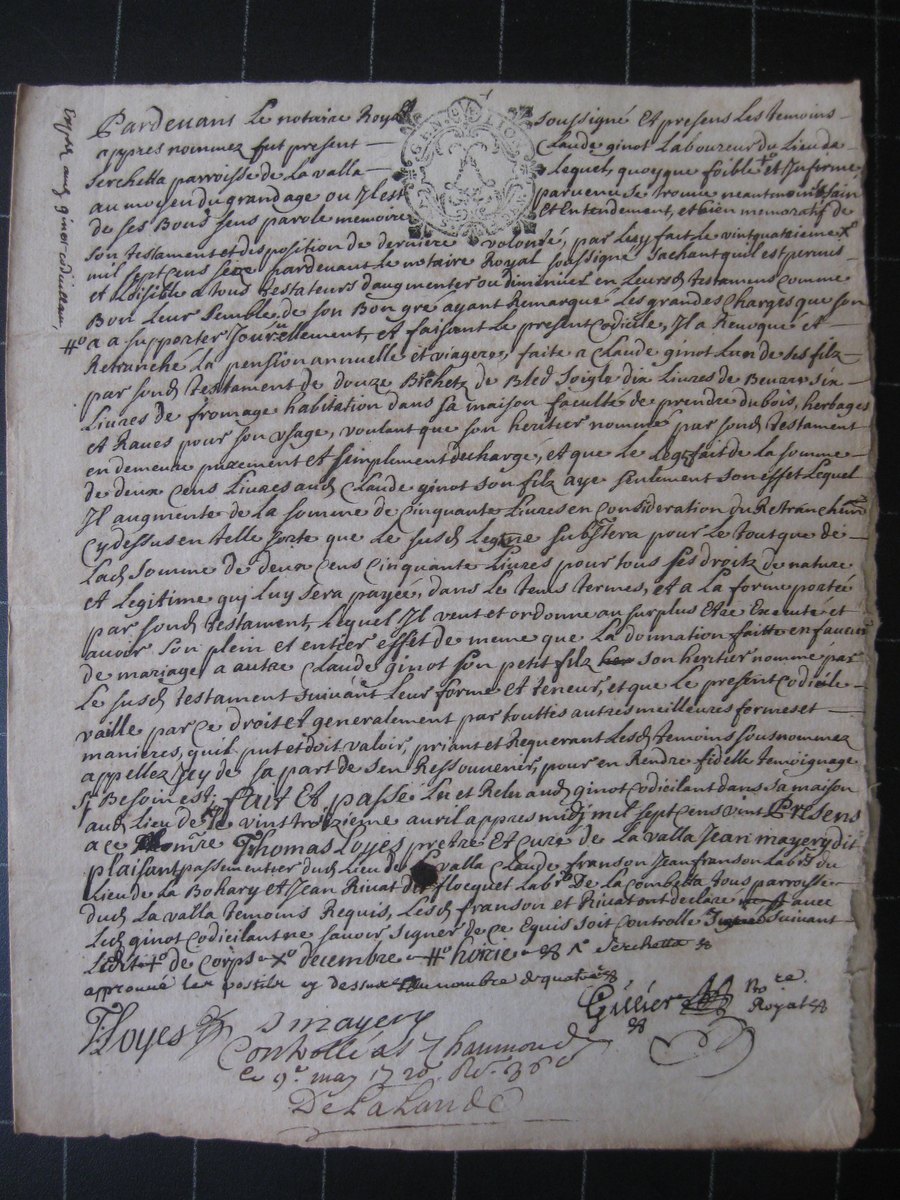 Pardevant Le notaire Royal soussigné Et presens Les temoins
yppres nommez fut present Claude ginot Laboureur du Lieu de
serchetta parroisse de La valla Lequel, quoyque foible +o et Infirme
au moyen du grand age ou Il est parvenu se trouve neantmoins sain
de ses Bons sens parole memoire Et Entendement, et bien memoratif de
son testament et disposition de derniere volonté, par Luy fait Le vingtquatrieme Xo
mil sept cens seze pardevant Le notaire Royal soussigné sachant quil est permis
et Loisible a tous testateurs daugmenter ou diminuer en Leursd testamens comme
Bon Leur semble, de son Bon gré ayant Remarqué Les grandes Charges que son
#o a a supporter Journellement, et faisant Le present Codicille, Il a Revoqué et
Retranché La pension annuelle et viagere, faite a Claude ginot Lun de ses filz
par sond testament de douze Bichetz de Bled soigle dix Livres de Beurre six
Livres de fromage habitation dans sa maison faculté de prendre du bois, herbages
et Raves pour son usage, voulant que son heritier nommé par sond testament
en demeure purement et simplement decharge, et que Le Legs fait de La somme
de deux cens Livres aud Claude ginot son filz aye seulement son effet Lequel
Il augmente de La somme de Cinquante Livres en consideration du Retranchem
cy dessus en telle sorte que Le susd subsistera pour Le tout que de
Lad somme de deux cens Cinquante Livres pour tous ses droitz de nature
et Legitime quy Luy sera payée, dans Le tems termes, et a La forme portée
par sond testament, Lequel Il veut et ordonne au surplus Etre Execute et
avoir son plein et entier effet de meme que La donnation faitte en faveur
de mariage a autre Claude ginot son petit filz son heritier nommé par
Le susd testament suivant Leur forme et teneur, et que Le present Codicile
vaille par ce droit et generalement par touttes autres meilleures formes et
manieres, quil put et doit valoir, priant et Requerant Lesd temoins sousnommez
appellez Icy de sa part de sen Ressouvenir, pour en Rendre fidelle temoignage
sy Besoin est; fait Et passé Lu et Relu aud ginot Codicilant dans sa maison
aud Lieu de vinttroizieme avril appres midy mil sept cens vint Presens
a ce Thomas Loyes pretre et curé de La valla Jean mayery dit
plaisant passementier dud Lieu de La valla Claude franson Jean franson Labrs du
Lieu de La Bohary et Jean Rivat dit flocquet Labr De La combetta tous parroisse
dud La valla temoins Requis, Lesd franson et Rivat ont declaré avec
Led ginot Codicilant ne savoir signer de ce Enquis soit Controlle suivant
Ledit +o de corps Xo decembre #o hoirie serchetta
approuve Les postilles cy dessus au nombre de quatre
TLoyes J mayery Gillier Nore Royal
Controllé a St Chaumond
Le 9e may 1720
DeLaLande